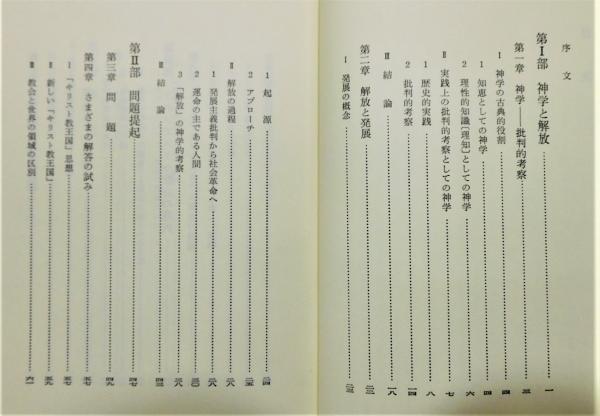 序文
第Ⅰ部 神学と解放……一
第一章 神学——批判的考察……三
Ⅰ 神学の古典的役割……四
1 知恵としての神学……四
2 理性的知識〔理知〕としての神学……六
Ⅱ 実践上の批判的考察としての神学……七
1 歴史的実践……八
2 批判的考察……一四
Ⅲ 結論……一八
第二章 解放と発展……二三
Ⅰ 発展の概念……二三
1 起源……二四
2 アプローチ……二五
Ⅱ 解放の過程……二八
1 発展主義批判から社会革命へ……二八
2 運命の主である人間……三〇
3 「解放」の神学的考察……三八
Ⅲ 結論……四三
第Ⅱ部 問題提起
第三章 問題……四九
第四章 さまざまの解答の試み……五七
Ⅰ 「キリスト教王国」思想……五七
Ⅱ 新しい「キリスト教王国」……五九
Ⅲ 教会と世界の領域の区別……六一